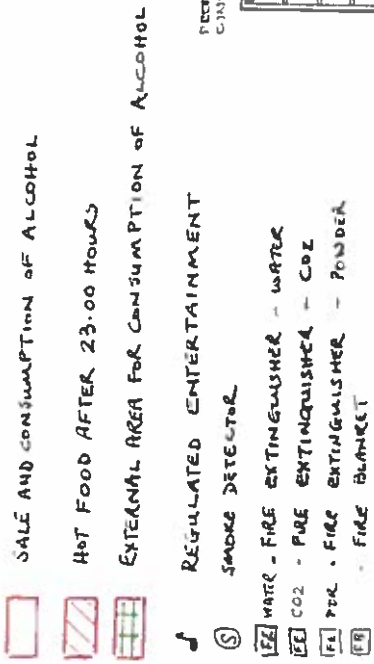 SALE AND CONSUMPTION OF ALCOHOL
HOT FOOD AFTER 23.00 HOURS
EXTERNAL AREA FOR CONSUMPTION OF ALCOHOL
REGULATED ENTERTAINMENT
S SMOKE DETECTOR
FE WATER - FIRE EXTINGUISHER - WATER
FE CO2 - FIRE EXTINGUISHER - CO2
FE PDR - FIRE EXTINGUISHER - POWDER
FB - FIRE BLANKET